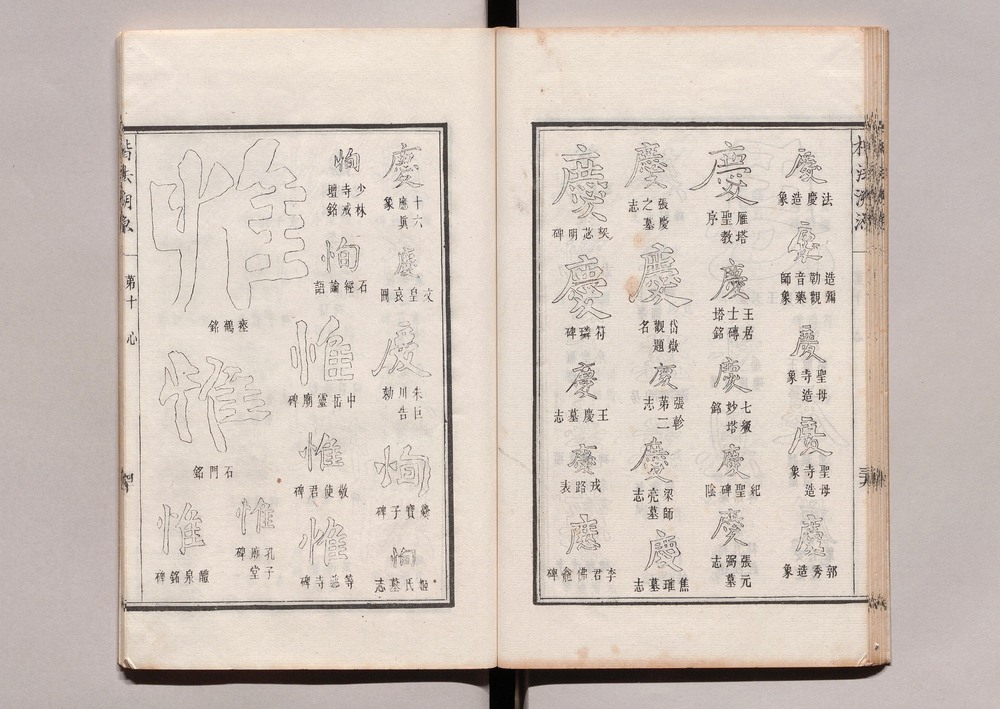 慶
法慶造象
慶
造彌勒觀音藥師象
慶
聖母寺造象
慶
聖母寺造象
慶
郭秀造象
慶
雁塔聖教序
慶
王居士磚塔銘
慶
七級妙塔銘
慶
紀聖碑陰
慶
張元弼墓志
慶
張慶之墓志
慶
岱嶽觀題名
慶
張軫第二志
慶
梁師亮墓志
慶
焦璀墓志
慶
契苾明碑
慶
符璘碑
慶
王慶墓志
慶
戎路表
慶
李君佛龕碑
慶
十六應眞象
慶
文皇哀冊
慶
朱巨川告勅
恂
爨寶子碑
恂
姬氏墓志
恂
少林寺戒壇銘
恂
石經論語
惟
中岳靈廟碑
惟
敬使君碑
惟
等慈寺碑
惟
瘞鶴銘
惟
石門銘
惟
孔子廟堂碑
惟
醴泉銘碑
第十
心